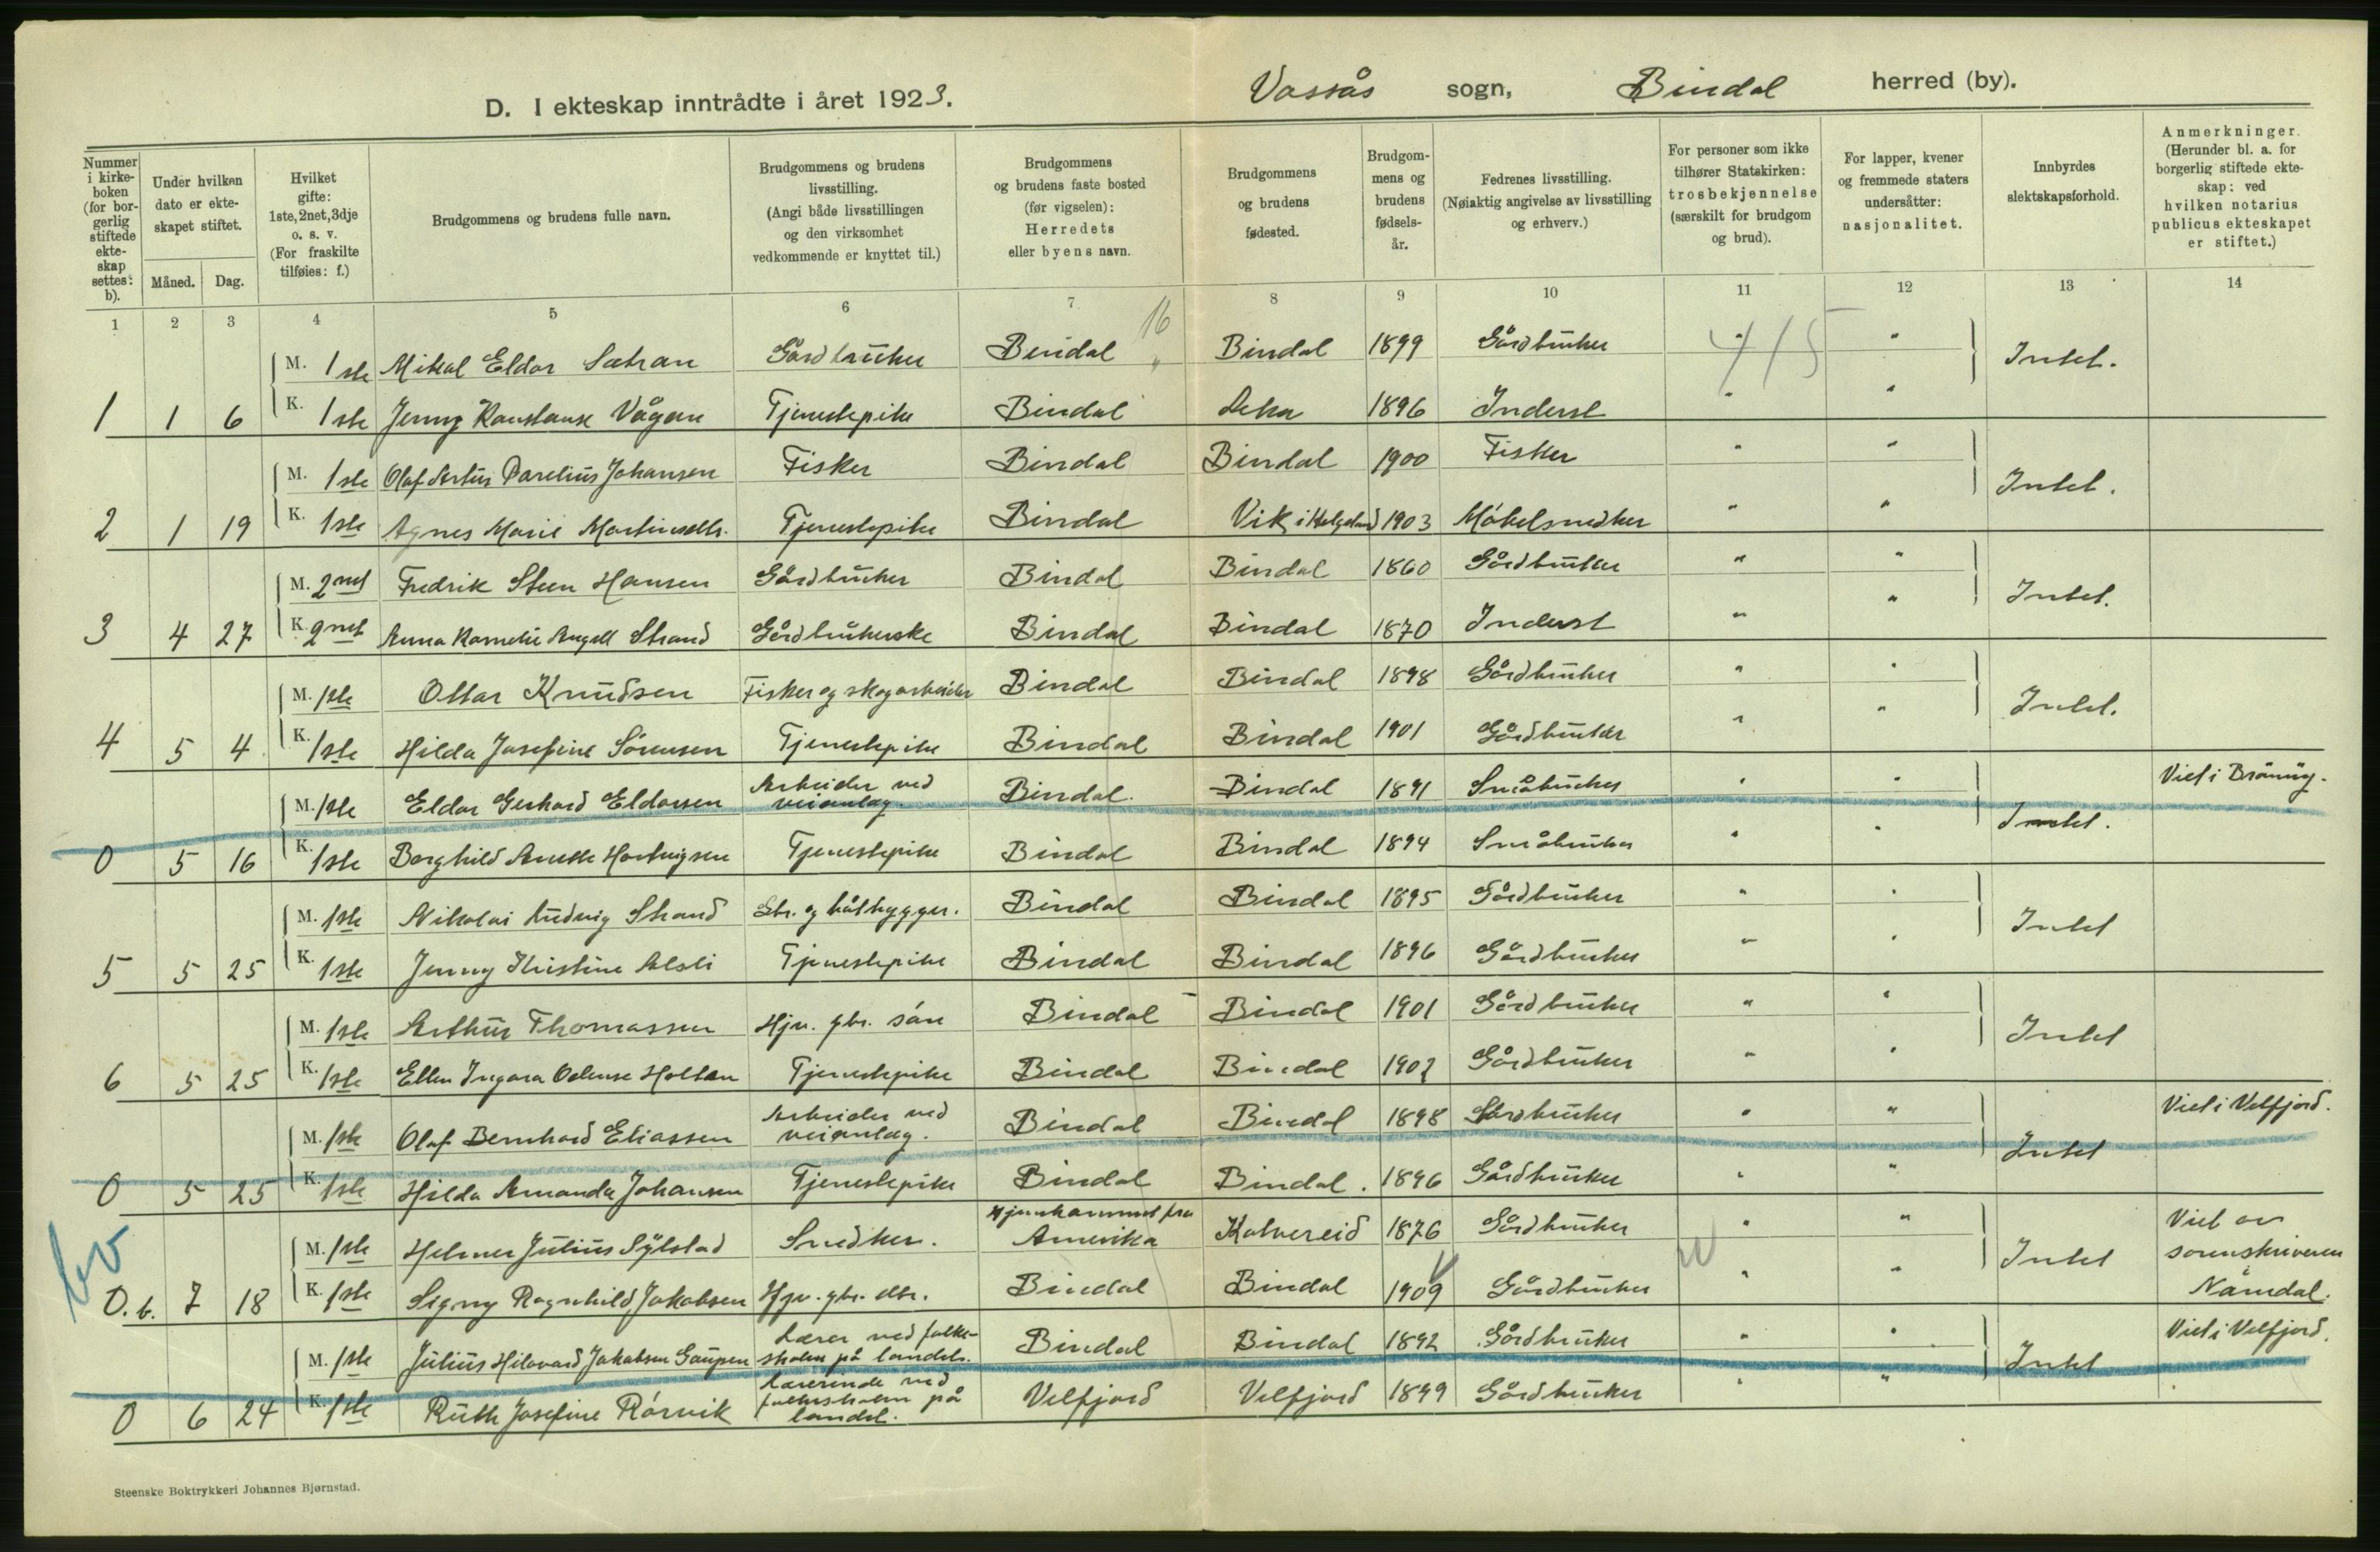 D. I ekteskap inntrådte i året 1923. Vassås sogn, Bindal herred (by).
Nummer i kirkeboken (for borgerlig stiftede ekteskap settes: b).
Under hvilken dato er ekteskapet stiftet.
Måned. Dag.
Hvilket gifte: 1ste, 2net, 3dje o. s. v. (For fraskilte tilføies: f.)
Brudgommens og brudens fulle navn.
Brudgommens og brudens livsstilling. (Angi både livsstillingen og den virksomhet vedkommende er knyttet til.)
Brudgommens og brudens faste bosted (før vigselen): Herredets eller byens navn.
Brudgommens og brudens fødested.
Brudgommens og brudens fødselsår.
Fedrenes livsstilling. (Nøiaktig angivelse av livsstilling og erhverv.)
For personer som ikke tilhører Statskirken: trosbekjennelse (særskilt for brudgom og brud).
For lapper, kvener og fremmede staters undersåtter: nasjonalitet.
Innbyrdes slektskapsforhold.
Anmerkninger. (Herunder bl. a. for borgerlig stiftede ekteskap: ved hvilken notarius publicus ekteskapet er stiftet.)
1 2 3 4 5 6 7 8 9 10 11 12 13 14
16
415
M. 1ste Mikal Eldor Sætran Gårdbruker Bindal " Bindal 1899 Gårdbruker " " Intet.
1 1 6 K. 1ste Jenny Konstanse Vågan Tjenestepike Bindal Leka 1896 Inderst " "
M. 1ste Olaf Artur Parelius Johansen Fisker Bindal Bindal 1900 Fisker " " Intet.
2 1 19 K. 1ste Agnes Marie Martinsdtr. Tjenestepike Bindal Vik i Helgeland 1903 Møbelsnedker " "
M. 2net Fredrik Steen Hansen Gårdbruker Bindal Bindal 1860 Gårdbruker " " Intet.
3 4 27 K. 2net Anna Kornelie Angell Strand Gårdbrukerske Bindal Bindal 1870 Inderst " "
M. 1ste Ottar Knudsen Fisker og skogarbeider Bindal Bindal 1898 Gårdbruker " " Intet.
4 5 4 K. 1ste Hilda Josefine Sørensen Tjenestepike Bindal Bindal 1901 Gårdbruker " "
M. 1ste Eldor Gerhard Eldorsen Arbeider ved veianlæg. Bindal. Bindal 1891 Småbruker " " Intet. Viet i Brønnøy.
0 5 16 K. 1ste Borghild Anette Hartvigsen Tjenestepike Bindal Bindal 1894 Småbruker " "
M. 1ste Nikolai Ludvig Strand Gbr. og båtbygger. Bindal Bindal 1895 Gårdbruker " " Intet
5 5 25 K. 1ste Jenny Kristine Alsli Tjenestepike Bindal Bindal 1896 Gårdbruker " "
M. 1ste Arthur Thomassen Hjv. gbr. søn Bindal Bindal 1901 Gårdbruker " " Intet
6 5 25 K. 1ste Ellen Ingara Odense Holten Tjenestepike Bindal Bindal 1902 Gårdbruker " "
M. 1ste Olaf Bernhard Eliassen Arbeider ved veianlæg. Bindal Bindal 1898 Gårdbruker " " Intet Viet i Velfjord.
0 5 25 K. 1ste Hilda Amanda Johansen Tjenestepike Bindal Bindal. 1896 Gårdbruker " "
M. 1ste Helmer Julius Sylstad Snedker. Hjemkommet fra Amerika Kolvereid 1876 Gårdbruker " " Intet Viet av sorenskriveren i Namdal.
0. b. 7 18 K. 1ste Signy Ragnhild Jakobsen Hjv. gbr. dtr. Bindal Bindal 1909 Gårdbruker " "
M. 1ste Julius Hilovard Jakobsen Gaupen Lærer ved folkeskolen på landet. Bindal Bindal 1892 Gårdbruker " " Intet Viet i Velfjord.
0 6 24 K. 1ste Ruth Josefine Rørvik Lærerinde ved folkeskolen på landet. Velfjord Velfjord 1899 Gårdbruker " "
Steenske Boktrykkeri Johannes Bjørnstad.